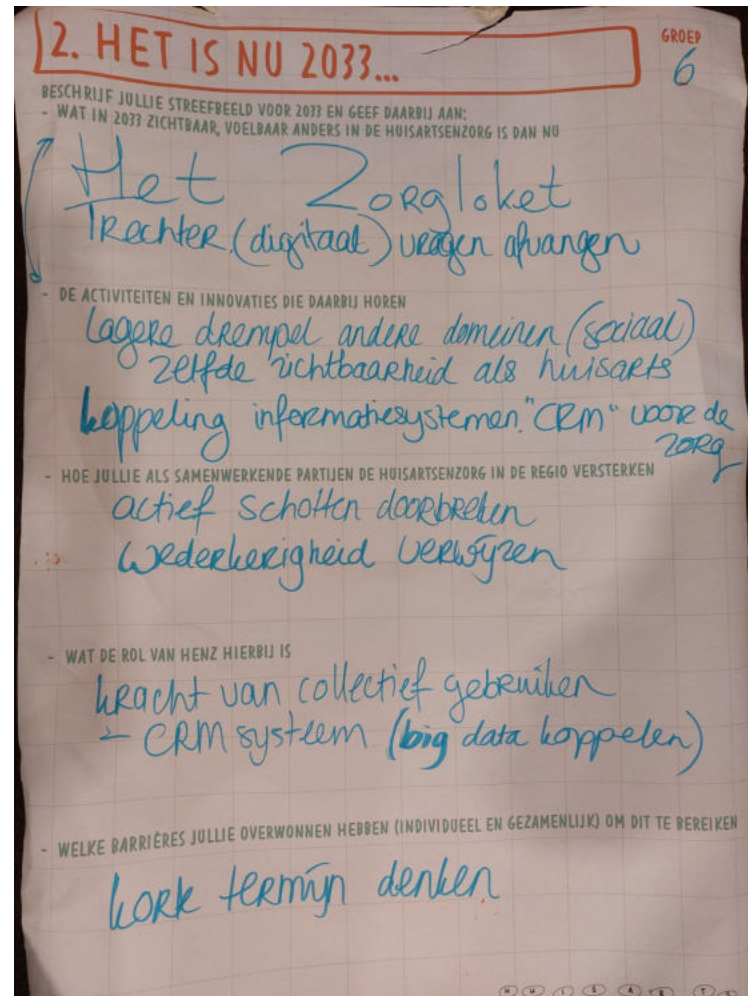 2. HET IS NU 2033...
GROEP
6
BESCHRIJF JULLIE STREEFBEELD VOOR 2033 EN GEEF DAARBIJ AAN:
- WAT IN 2033 ZICHTBAAR, VOELBAAR ANDERS IN DE HUISARTSENZORG IS DAN NU
Het Zorgloket
Trechter (digitaal) vragen afvangen
- DE ACTIVITEITEN EN INNOVATIES DIE DAARBIJ HOREN
lagere drempel andere domeinen (sociaal)
zelfde zichtbaarheid als huisarts
koppeling informatiesystemen. "CRM" voor de
zorg
- HOE JULLIE ALS SAMENWERKENDE PARTIJEN DE HUISARTSENZORG IN DE REGIO VERSTERKEN
actief schotten doorbreken
wederkerigheid verwijzen
- WAT DE ROL VAN HENZ HIERBIJ IS
kracht van collectief gebruiken
- CRM systeem (big data koppelen)
- WELKE BARRIÈRES JULLIE OVERWONNEN HEBBEN (INDIVIDUEEL EN GEZAMENLIJK) OM DIT TE BEREIKEN
korte termijn denken